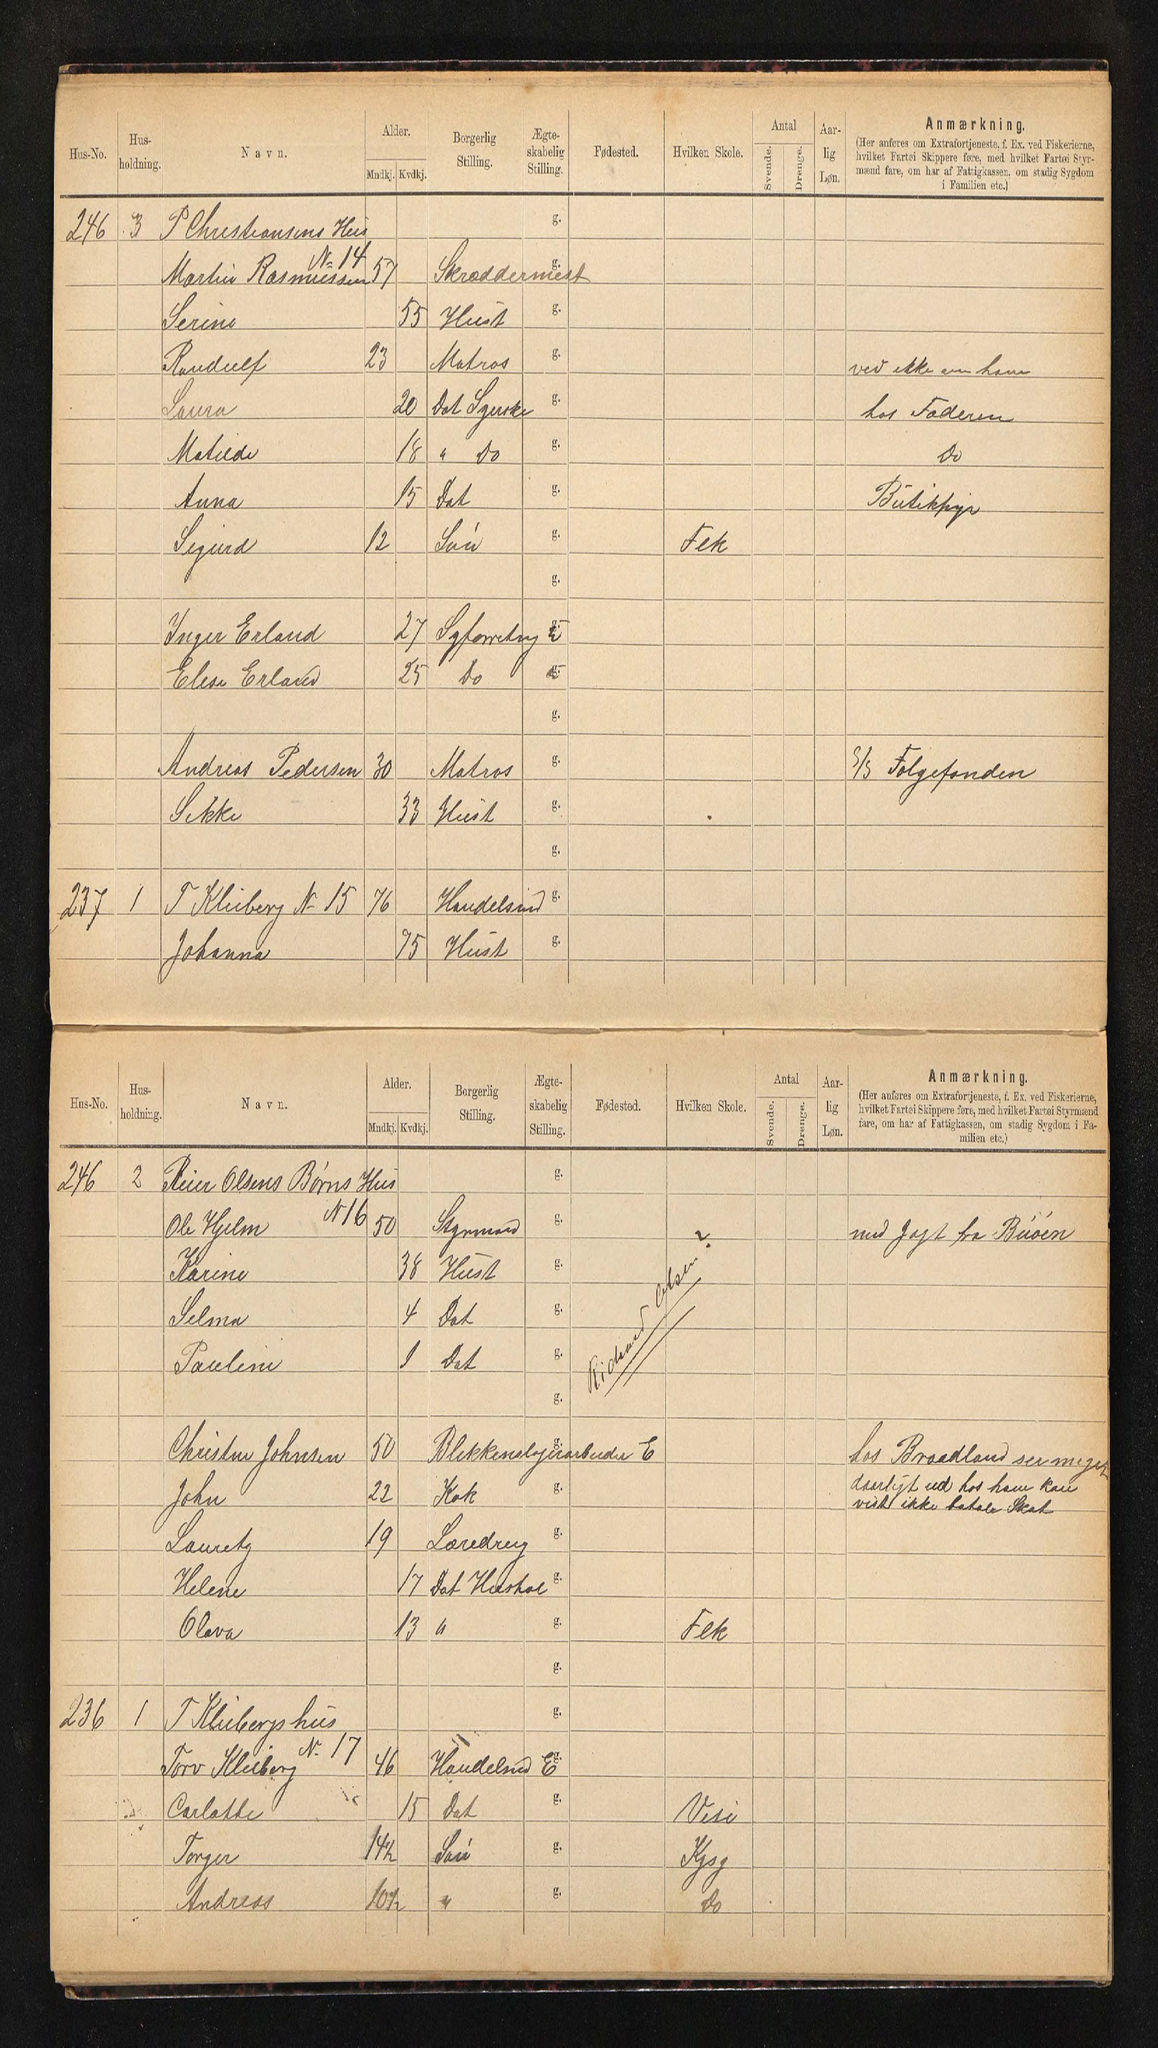 Hus-No. Hus-holdning. Navn. Alder. Mndkj. Kvdkj. Borgerlig Stilling. Ægte-skabelig Stilling. Fødested. Hvilken Skole. Antal Svende. Drenge. Aar-lig Løn. Anmærkning.
(Her anføres om Extrafortjeneste, f. Ex. ved Fiskerierne,
hvilket Fartøi Skippere føre, med hvilket Fartøi Styr-
mænd fare, om har af Fattigkassen, om stadig Sygdom
i Familien etc.)
246 3 P Christiansens Hus g.
No 14
Martin Rasmussen 57 Skræddermest g.
Serine 55 Hust g.
Randulf 23 Matros g. ved ikke om ham
Laura 20 Dat Syerske g. hos Faderen
Matilde 18 " Do g. Do
Anna 15 Dat g. Butikpige
Sigurd 12 Søn g. Flk
g.
Inger Erland 27 Syforretng E
Elise Erland 25 Do E
g.
Andreas Pedersen 30 Matros g. S/S Folgefonden
Sikke 33 Hust g.
g.
237 1 T Kleiberg No 15 76 Handelsmd g.
Johanna 75 Hust g.
Hus-No. Hus-holdning. Navn. Alder. Mndkj. Kvdkj. Borgerlig Stilling. Ægte-skabelig Stilling. Fødested. Hvilken Skole. Antal Svende. Drenge. Aar-lig Løn. Anmærkning.
(Her anføres om Extrafortjeneste, f. Ex. ved Fiskerierne,
hvilket Fartøi Skippere føre, med hvilket Fartøi Styrmænd
fare, om har af Fattigkassen, om stadig Sygdom i Fa-
milien etc.)
246 2 Reier Olsens Børns Hus g.
N 16
Ole Hjelm 50 Styrmand g. med Jagt fra Buøen
Karine 38 Hust g.
Selma 4 Dat g.
Pauline 1 Dat g.
Richard Olsen?
g.
Christne Johnsen 50 Blikkenslagerarbeider E hos Braadland ser meget
daarligt ud hos ham kan
vist ikke betale Skat
John 22 Kok g.
Lauritz 19 Læredreng g.
Helene 17 Dat Hushol g.
Olava 13 " g. Flk
g.
236 1 T Kleibergs hus g.
No 17
Torv Kleiberg 46 Handelsmd E
Carlotte 15 Dat g. Vise
Torger 14½ Søn g. Kgsg
Andreas 10½ " g. Do